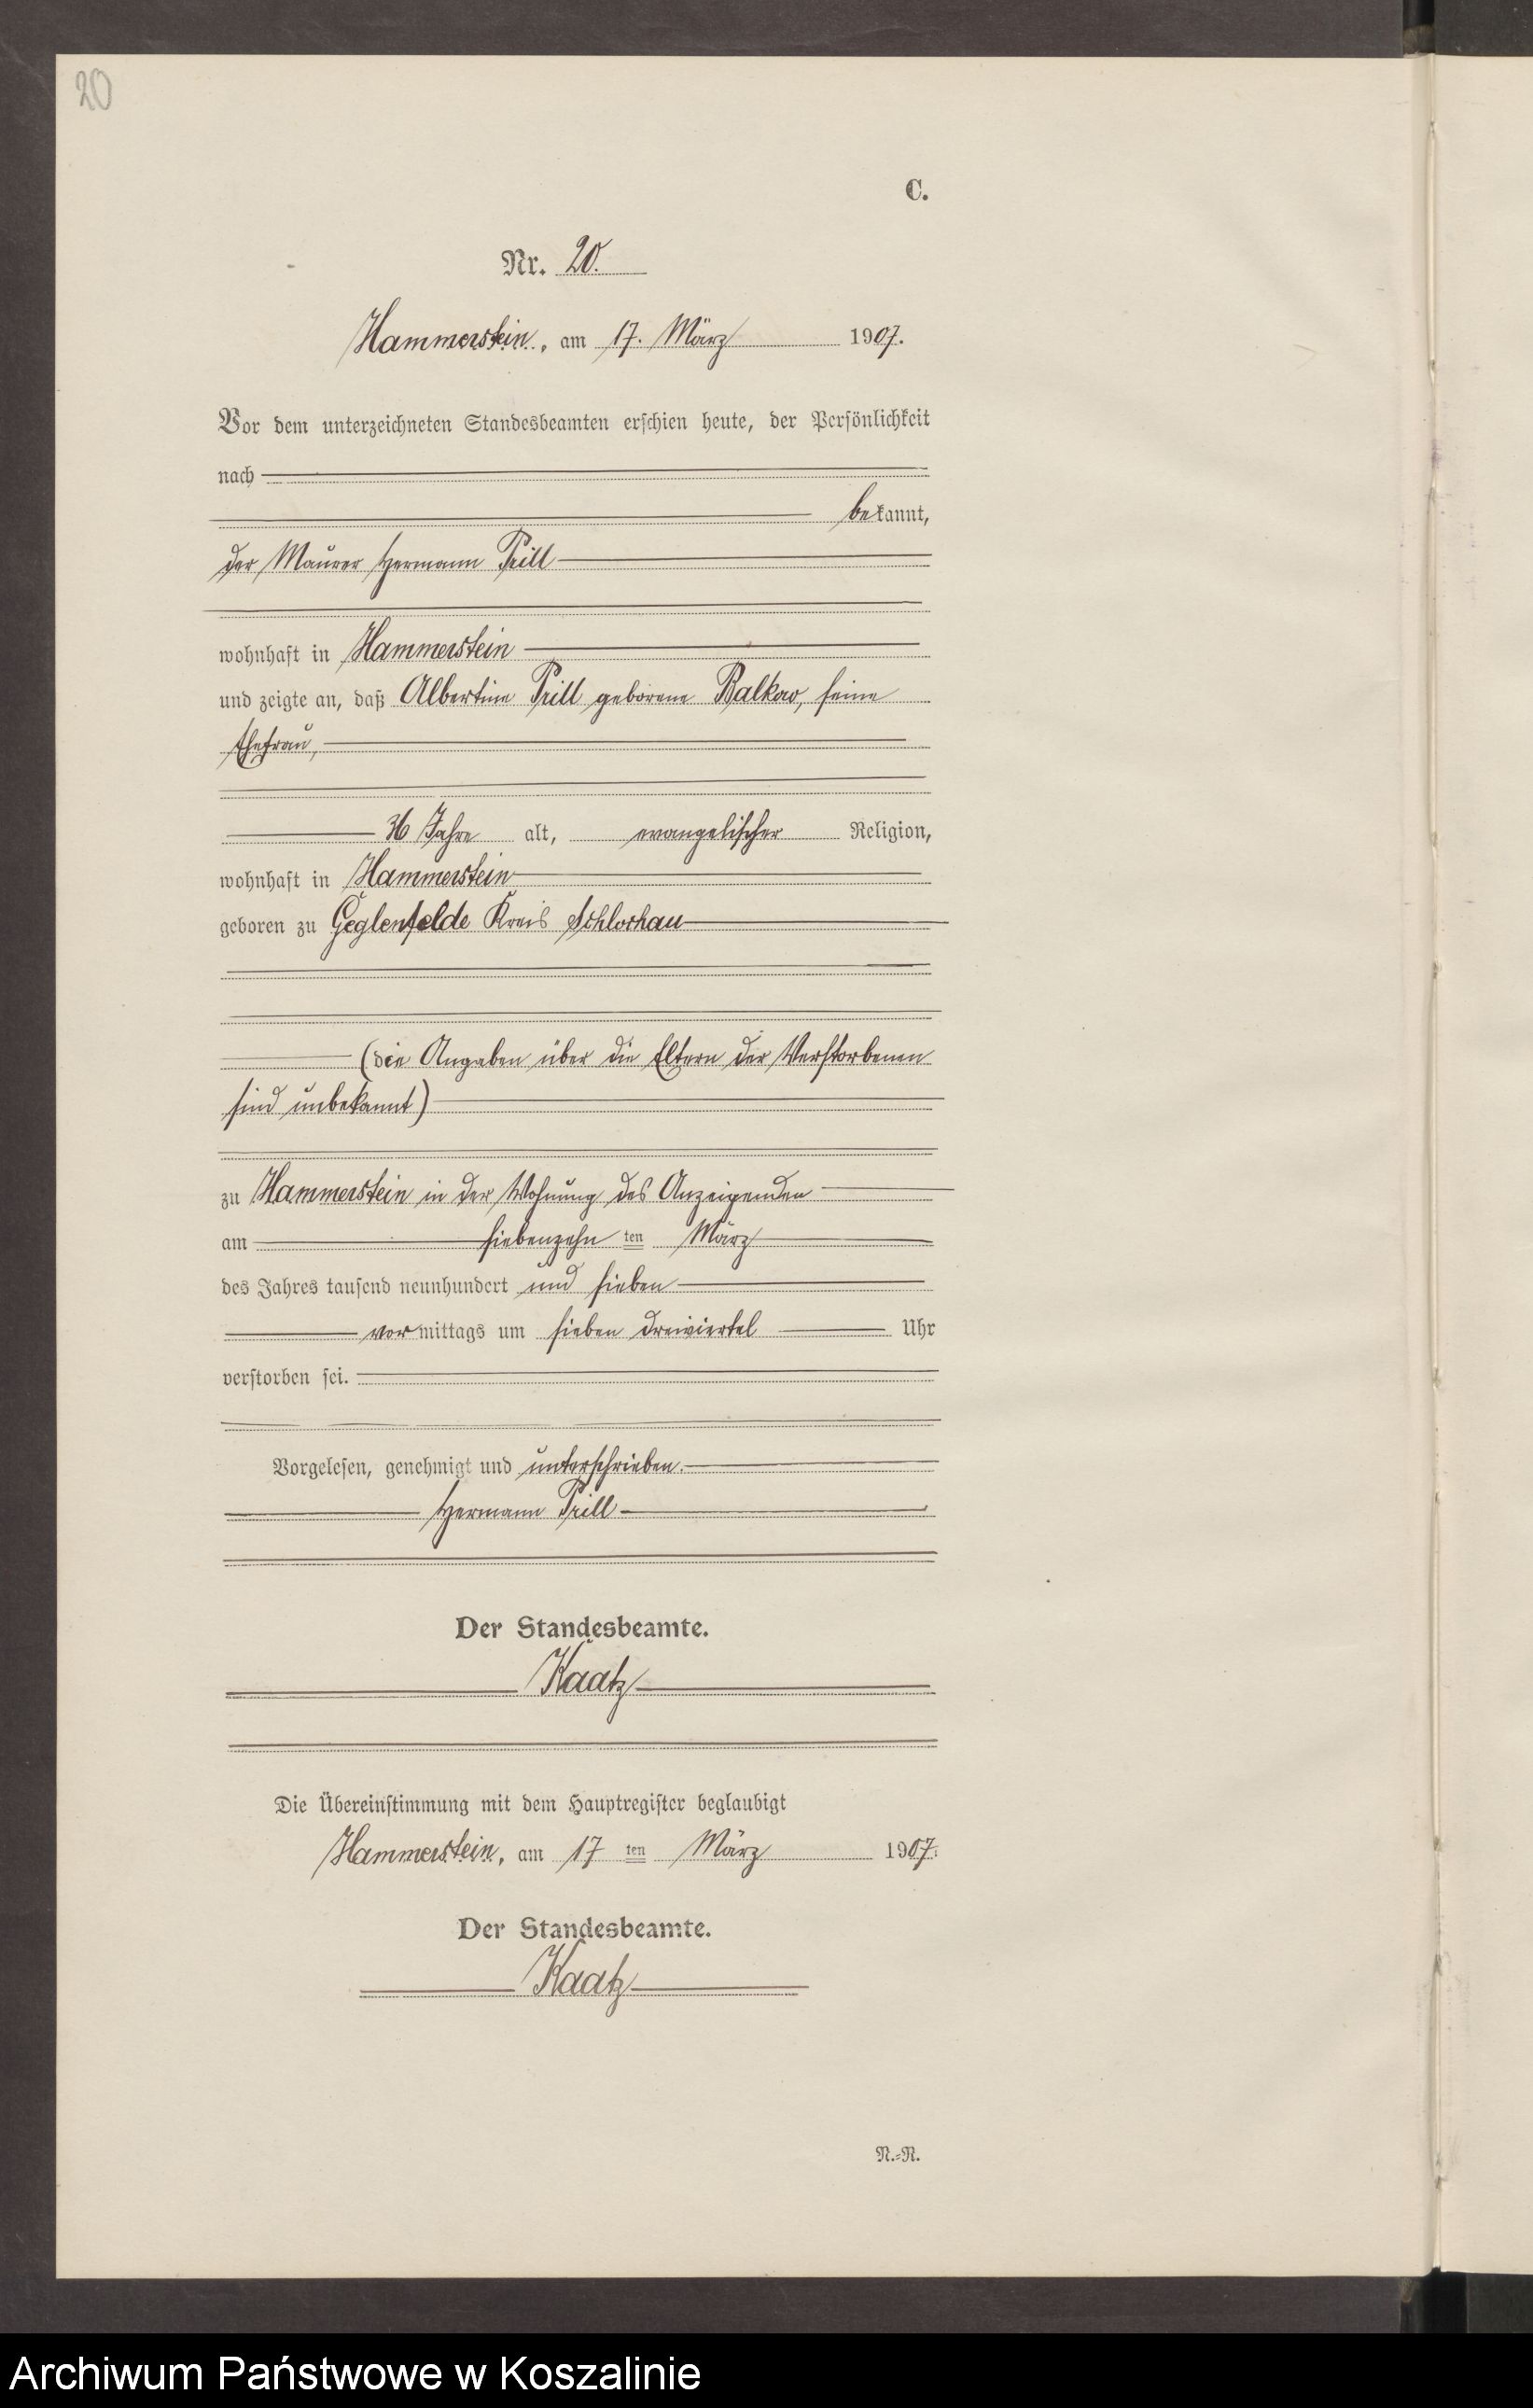 20
C.
Nr. 20.
Hammerstein, am 17. März 1907.
Vor dem unterzeichneten Standesbeamten erschien heute, der Persönlichkeit
nach
bekannt,
der Maurer Hermann Prill
wohnhaft in Hammerstein
und zeigte an, daß Albertine Prill geborene Balkow, seine
Ehefrau,
36 Jahre alt, evangelischer Religion,
wohnhaft in Hammerstein
geboren zu Geglenfelde Kreis Schlochau
(die Angaben über die Eltern der Verstorbenen
sind unbekannt)
zu Hammerstein in der Wohnung des Anzeigenden
am siebenzehn ten März
des Jahres tausend neunhundert und sieben
vormittags um sieben dreiviertel Uhr
verstorben sei.
Vorgelesen, genehmigt und unterschrieben.
Hermann Prill
Der Standesbeamte.
Kaatz
Die Übereinstimmung mit dem Hauptregister beglaubigt
Hammerstein, am 17 ten März 1907.
Der Standesbeamte.
Kaatz
N.=R.
Archiwum Państwowe w Koszalinie